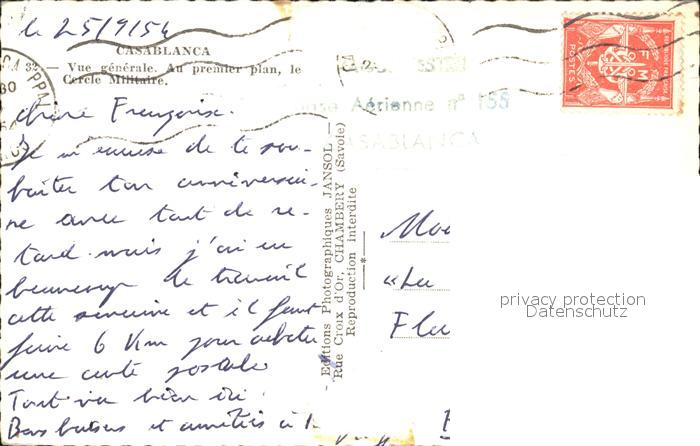 le 25/9/54
CASABLANCA
32 — Vue générale. Au premier plan, le
Cercle Militaire.
chère Françoise.
Je m'excuse de te sou-
haiter ton anniversai-
re avec tant de re-
tard mais j'ai eu
beaucoup de travail
cette semaine et il faut
faire 6 Km pour acheter
une carte postale
Tout va bien ici
Bons baisers et amitiés à
Editions Photographiques JANSOL —
Rue Croix d'Or, CHAMBERY (Savoie)
Reproduction interdite
Aérienne n° 155
CASABLANCA
POSTES
F M
"La
privacy protection
Datenschutz